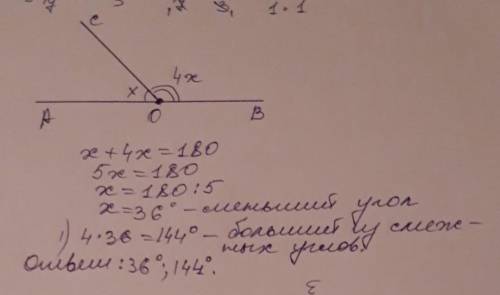 C
x 4x
A O B
x + 4x = 180
5x = 180
x = 180 : 5
x = 36° - меньший угол
1) 4 · 36 = 144° - больший из смеж-
ных углов.
Ответ: 36°; 144°.